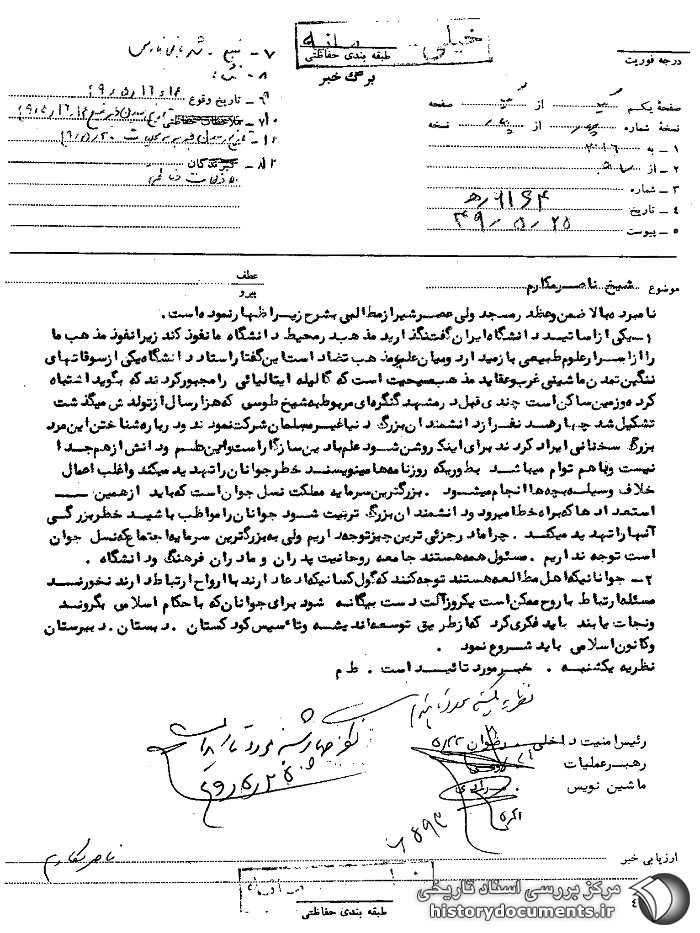 خیلی محرمانه
طبقه بندی حفاظتی
برگ خبر
درجه فوریت
صفحهٔ یکم از صفحه
نسخهٔ شماره از نسخه
۱ – به ۳۱۶
۲ – از
۳ – شماره
۴ – تاریخ
۵ – پیوست
۷ – منبع
۸ –
۹ – تاریخ وقوع
ملاحظات حفاظتی
گیرندگان
موضوع شیخ ناصر مکارم
عطف
پیرو
نامبرده بالا ضمن وعظ در مسجد ولی عصر شیراز مطالبی بشرح زیر اظهار نموده است.
۱– یکی از اساتید دانشگاه ایران گفت نگذارید مذهب در محیط دانشگاه ما نفوذ کند زیرا نفوذ مذهب ما
را از اسرار علوم طبیعی باز میدارد و میان علم و مذهب تضاد است این گفتار استاد دانشگاه یکی از سوقاتهای
ننگین تمدن ماشینی غرب و عقاید مذهب مسیحیت است که گالیله ایتالیائی را مجبور کردند که بگوید اشتباه
کرده و زمین ساکن است چندی قبل در مشهد کنگره ای مربوط به شیخ طوسی که هزار سال از تولدش میگذشت
تشکیل شد چهارصد نفر از دانشمندان بزرگ دنیا غیر مسلمان شرکت نمودند و درباره شناختن این مرد
بزرگ سخنانی ایراد کردند برای اینکه روشن شود علم با دین سازگار است و این علم و دانش از هم جدا
نیست و با هم توام میباشد بطوریکه روزنامه ها مینویسند خطر جوانان را تهدید میکند و اغلب اعمال
خلاف وسیله بچه ها انجام میشود . بزرگترین سرمایه مملکت نسل جوان است که باید از همین
استعدادها که براه خطا میرود دانشمندان بزرگ تربیت شود جوانان را مواظب باشید خطر بزرگی
آنها را تهدید میکند . چرا ما در جزئی ترین چیز توجه داریم ولی به بزرگترین سرمایه اجتماع که نسل جوان
است توجه نداریم . مسئول همه هستند جامعه روحانیت پدران و مادران فرهنگ و دانشگاه .
۲– جوانانیکه اهل مطالعه هستند توجه کنند که گول کسانیکه ادعا دارند با ارواح ارتباط دارند نخورند
مسئله ارتباط با روح ممکن است یکروز آلت دست بیگانه شود برای جوانان که با حکام اسلامی بگروند
و نجات یابند باید فکری کرد که از طریق توسعه اندیشه و تاسیس کودکستان . دبستان . دبیرستان
و کانون اسلامی باید شروع نمود .
نظریه یکشنبه . خبر مورد تائید است . ط م
رئیس امنیت داخلی
رهبر عملیات
ماشین نویس
ارزیابی خبر
ناصر مکارم
طبقه بندی حفاظتی
مرکز بررسی اسناد تاریخی
historydocuments.ir